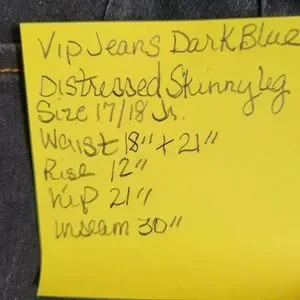 Vip Jeans Dark Blue
Distressed Skinny leg
Size 17/18 Jr.
Waist 18" x 21"
Rise 12"
hip 21"
inseam 30"